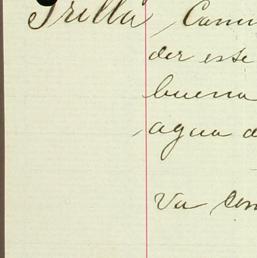 Trilla, Cam
der este
buena
agua d
Va con